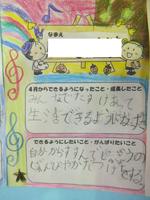 なまえ
4月からできるようになったこと・成長したこと
みんなでたすけあって
生活できるようになった
できるようにしたいこと・がんばりたいこと
自分からすすんで
じゅんびやかたづけをする